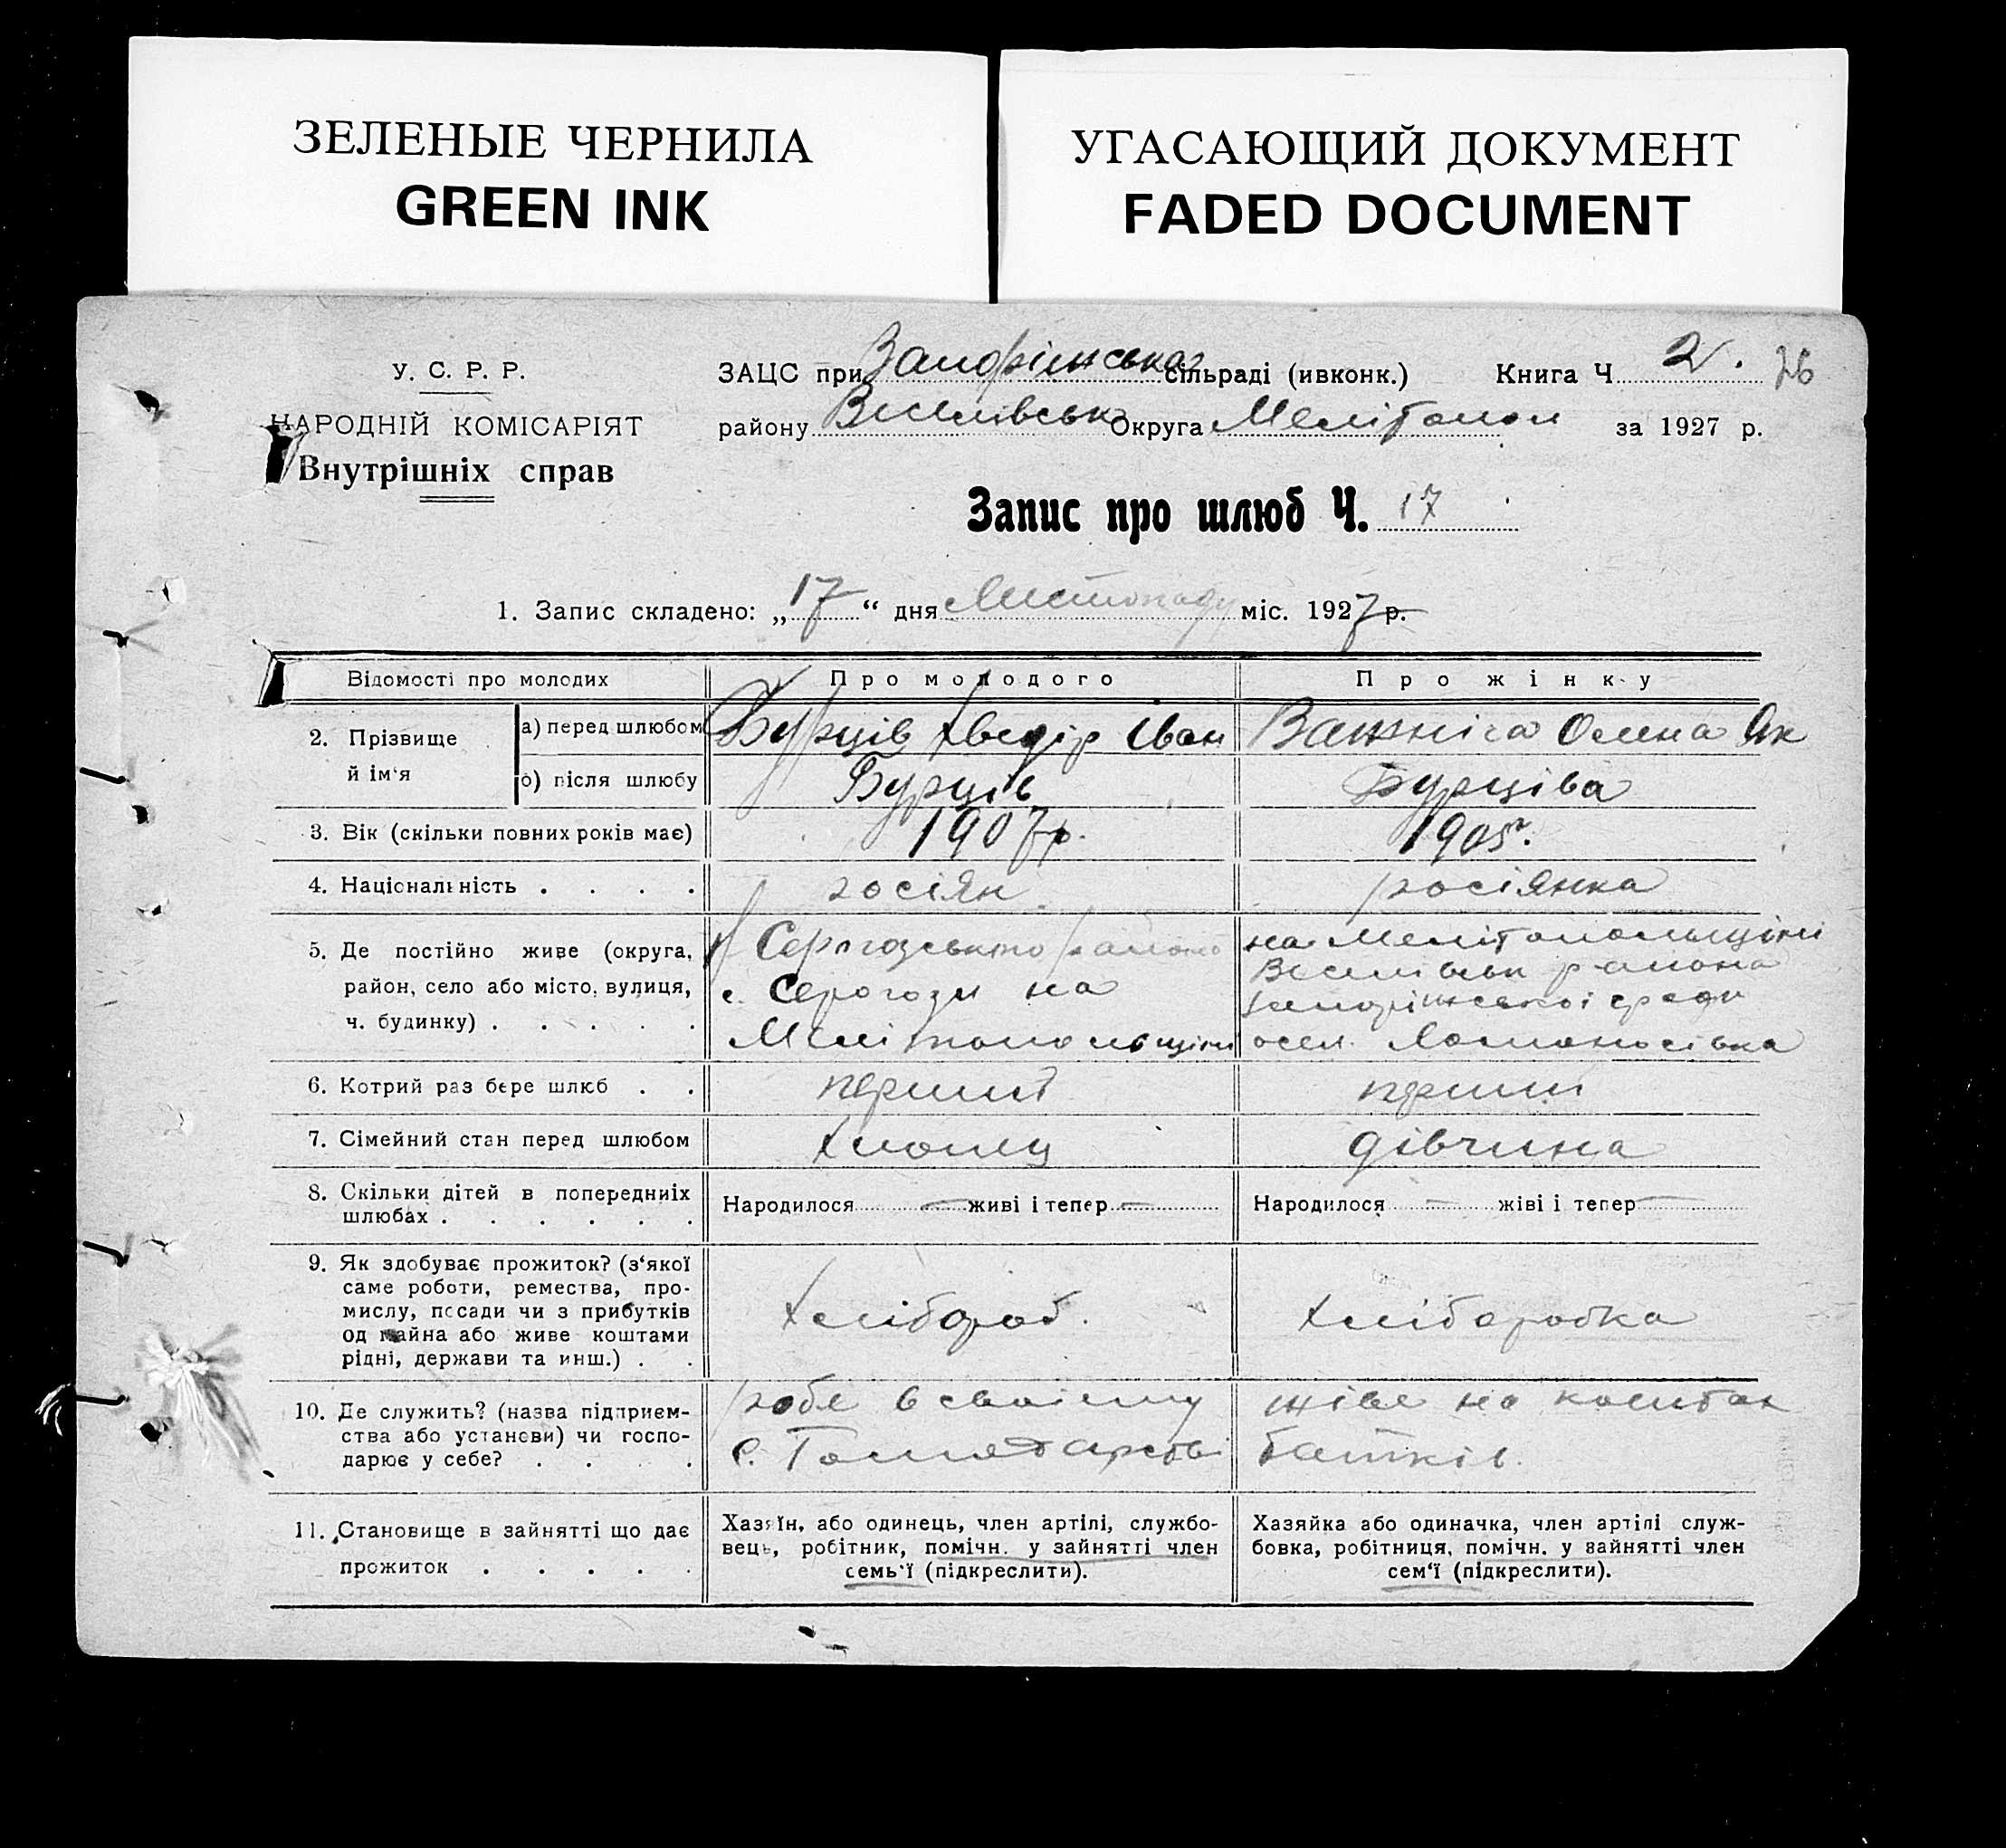 ЗЕЛЕНЫЕ ЧЕРНИЛА
GREEN INK
УГАСАЮЩИЙ ДОКУМЕНТ
FADED DOCUMENT
У. С. Р. Р.
НАРОДНІЙ КОМІСАРІЯТ
Внутрішніх справ
ЗАЦС при сільраді (ивконк.) Книга Ч 2. 76
району Веселівськ Округа Мелітопол за 1927 р.
Запис про шлюб Ч. 17
1. Запис складено: „17“ дня Листопаду міс. 1927 р.
Відомості про молодих
Про молодого
Про жінку
2. Прізвище й ім‘я
а) перед шлюбом
Бурців Хведір Іван
Олена Як
б) після шлюбу
Бурців
Бурціва
3. Вік (скільки повних років має)
1907 р.
1905 р.
4. Національність . . . .
росіян
росіянка
5. Де постійно живе (округа,
район, село або місто, вулиця,
ч. будинку) . . . . .
Серогозського району
с. Серогози на
Мелітопольщіні
на Мелітопольщіні
Веселівськ района
осел. Ломоносівка
6. Котрий раз бере шлюб . .
перший
перший
7. Сімейний стан перед шлюбом
хлопец
дівчина
8. Скільки дітей в попередніх
шлюбах . . . . . .
Народилося — живі і тепер —
Народилося — жіві і тепер —
9. Як здобуває прожиток? (з‘якої
саме роботи, ремества, про-
мислу, посади чи з прибутків
од майна або живе коштами
рідні, держави та инш.) . .
Хлібороб.
Хліборобка
10. Де служить? (назва підприєм-
ства або установи) чи госпо-
дарює у себе? . . . .
робе в своіему
с. Господарстві
живе на коштах
батків.
11. Становище в зайнятті що дає
прожиток . . . . .
Хазяїн, або одинець, член артілі, службо-
вець, робітник, помічн. у зайнятті член
семь‘ї (підкреслити).
Хазяйка або одиначка, член артілі служ-
бовка, робітниця, помічн. у зайнятті член
сем‘ї (підкреслити).